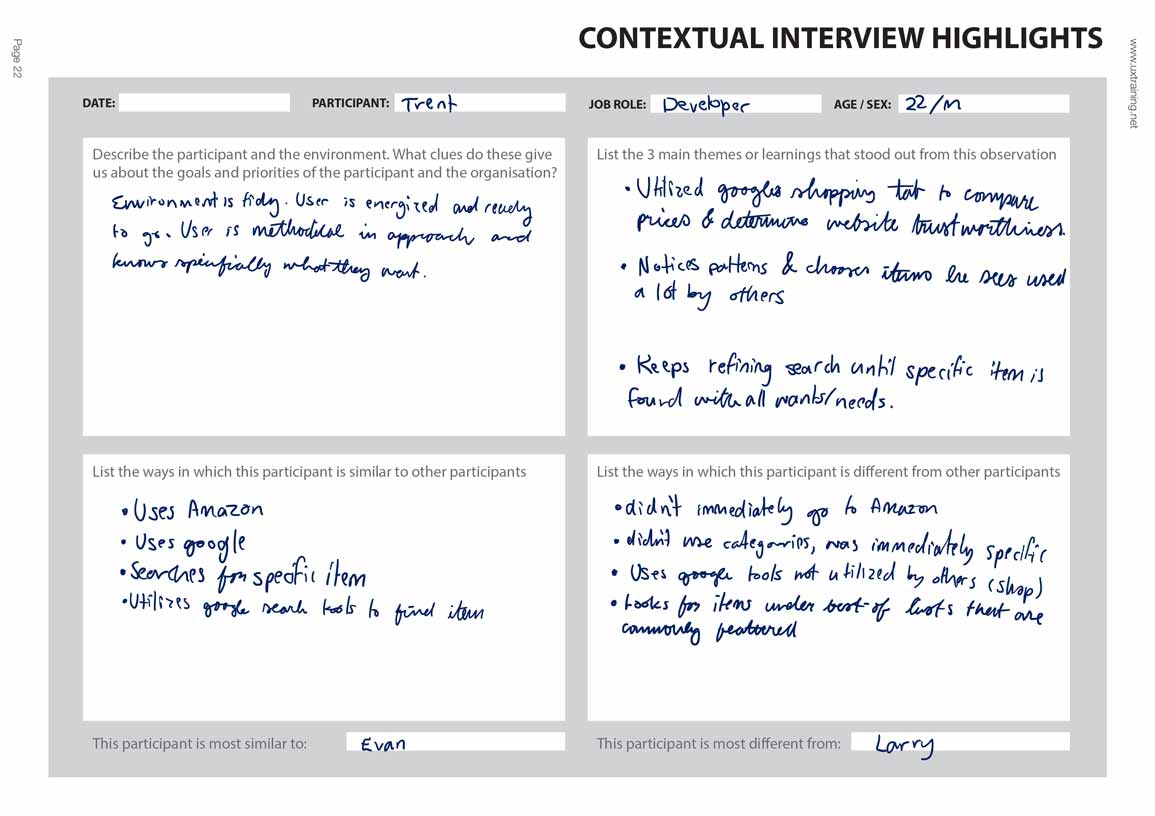 CONTEXTUAL INTERVIEW HIGHLIGHTS
Page 22
www.uxtraining.net
DATE:
PARTICIPANT: Trent
JOB ROLE: Developer
AGE / SEX: 22/M
Describe the participant and the environment. What clues do these give
us about the goals and priorities of the participant and the organisation?
Environment is tidy. User is energized and ready
to go. User is methodical in approach and
knows specifially what they want.
List the 3 main themes or learnings that stood out from this observation
• Utilized googles shopping tab to compare
prices & determine website trustworthiness.
• Notices patterns & chooses items he sees used
a lot by others
• Keeps refining search until specific item is
found with all wants/needs.
List the ways in which this participant is similar to other participants
• Uses Amazon
• Uses google
• Searches for specific item
• Utilizes google search tools to find item
List the ways in which this participant is different from other participants
• didn't immediately go to Amazon
• didn't use categories, was immediately specific
• Uses google tools not utilized by others (shop)
• Looks for items under best-of lists that are
commonly feattured
This participant is most similar to: Evan
This participant is most different from: Larry